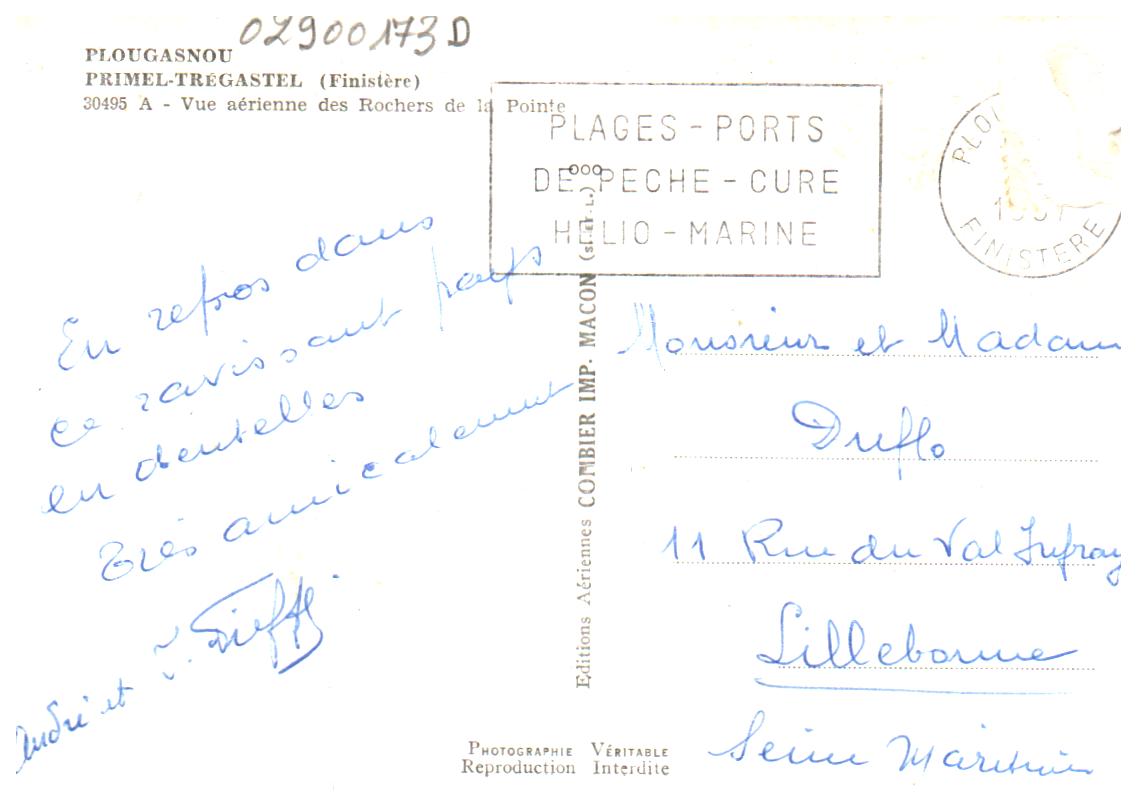 02900173D
PLOUGASNOU
PRIMEL-TRÉGASTEL (Finistère)
30495 A - Vue aérienne des Rochers de la Pointe
PLAGES - PORTS
DE PECHE - CURE
HELIO - MARINE
PLOU
FINISTERE
En repos dans
ce ravissant pays
en dentelles
Très amicalement
André et J.
Editions Aériennes COMBIER IMP. MACON (S.-ET-L.)
Monsieur et Madam
Duflo
11 Rue du Val Infray
Lillebonne
Seine Maritime
PHOTOGRAPHIE VÉRITABLE
Reproduction Interdite